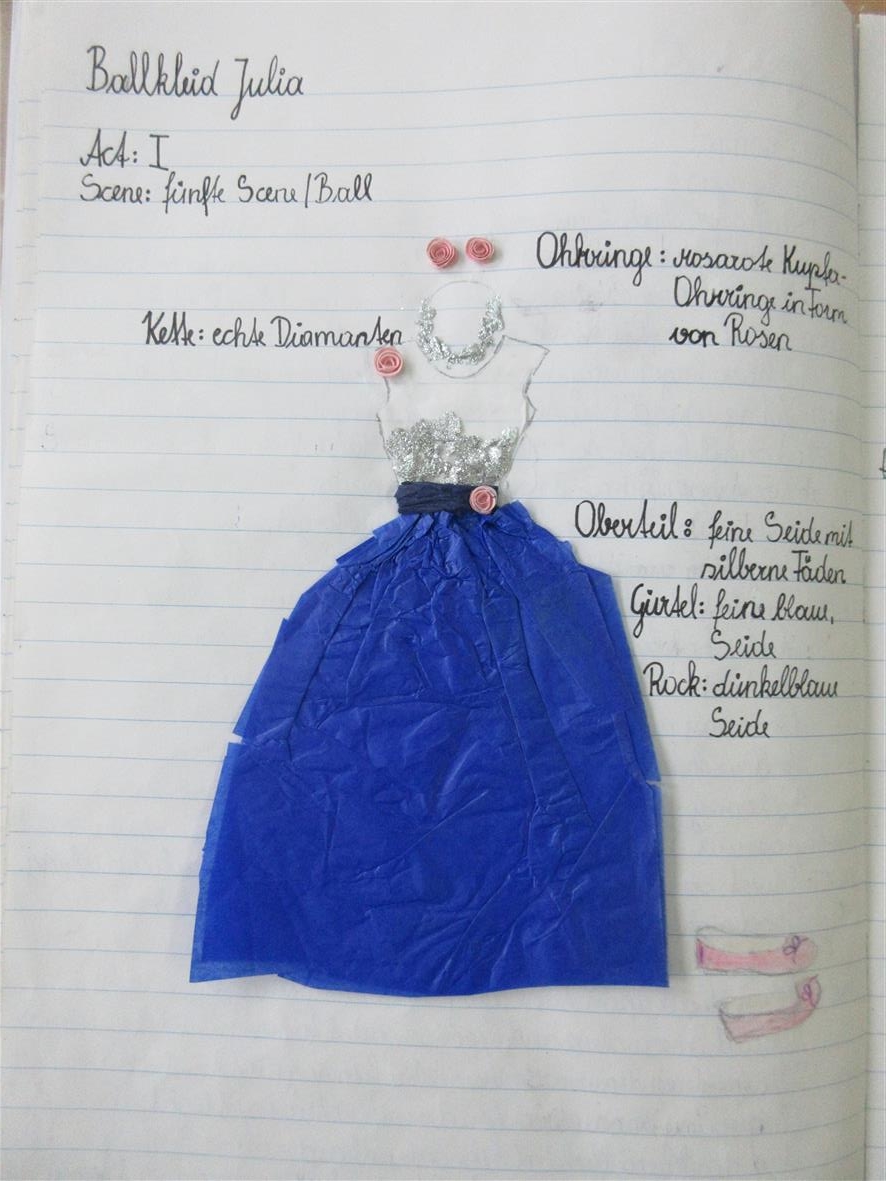 Ballkleid Julia
Act: I
Scene: fünfte Scene/Ball
Ohrringe: rosarote Kupfer-
Ohrringe in Form
von Rosen
Kette: echte Diamanten
Oberteil: feine Seide mit
silberne Fäden
Gürtel: feine blaue,
Seide
Rock: dunkelblaue
Seide